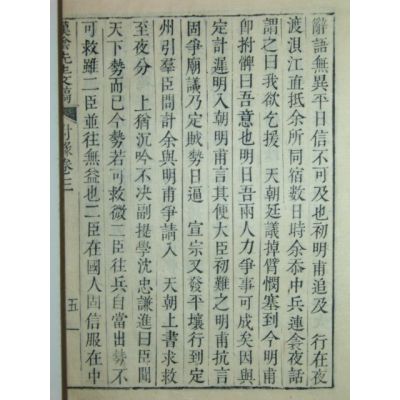 辭語無異平日信不可及也初明甫追及　行在夜
渡浿江直抵余所同宿數日時余忝中兵連衾夜話
謂之曰我欲乞援　天朝廷議掉臂憫塞到今明甫
卽拊髀曰吾意也明日吾兩人力爭事可成矣因與
定計遲明入朝明甫言其便大臣初難之明甫抗言
固爭廟議乃定賊勢日逼　宣宗又發平壤行到定
州引羣臣問計余與明甫爭請入　天朝上書求救
至夜分　上猶沉吟不决副提學沈忠謙進曰臣聞
天下勢而已今勢若可救微二臣往兵自當出勢不
可救雖二臣並往無益也二臣在國人固信服在中
漢陰先生文稿　附錄卷二　五